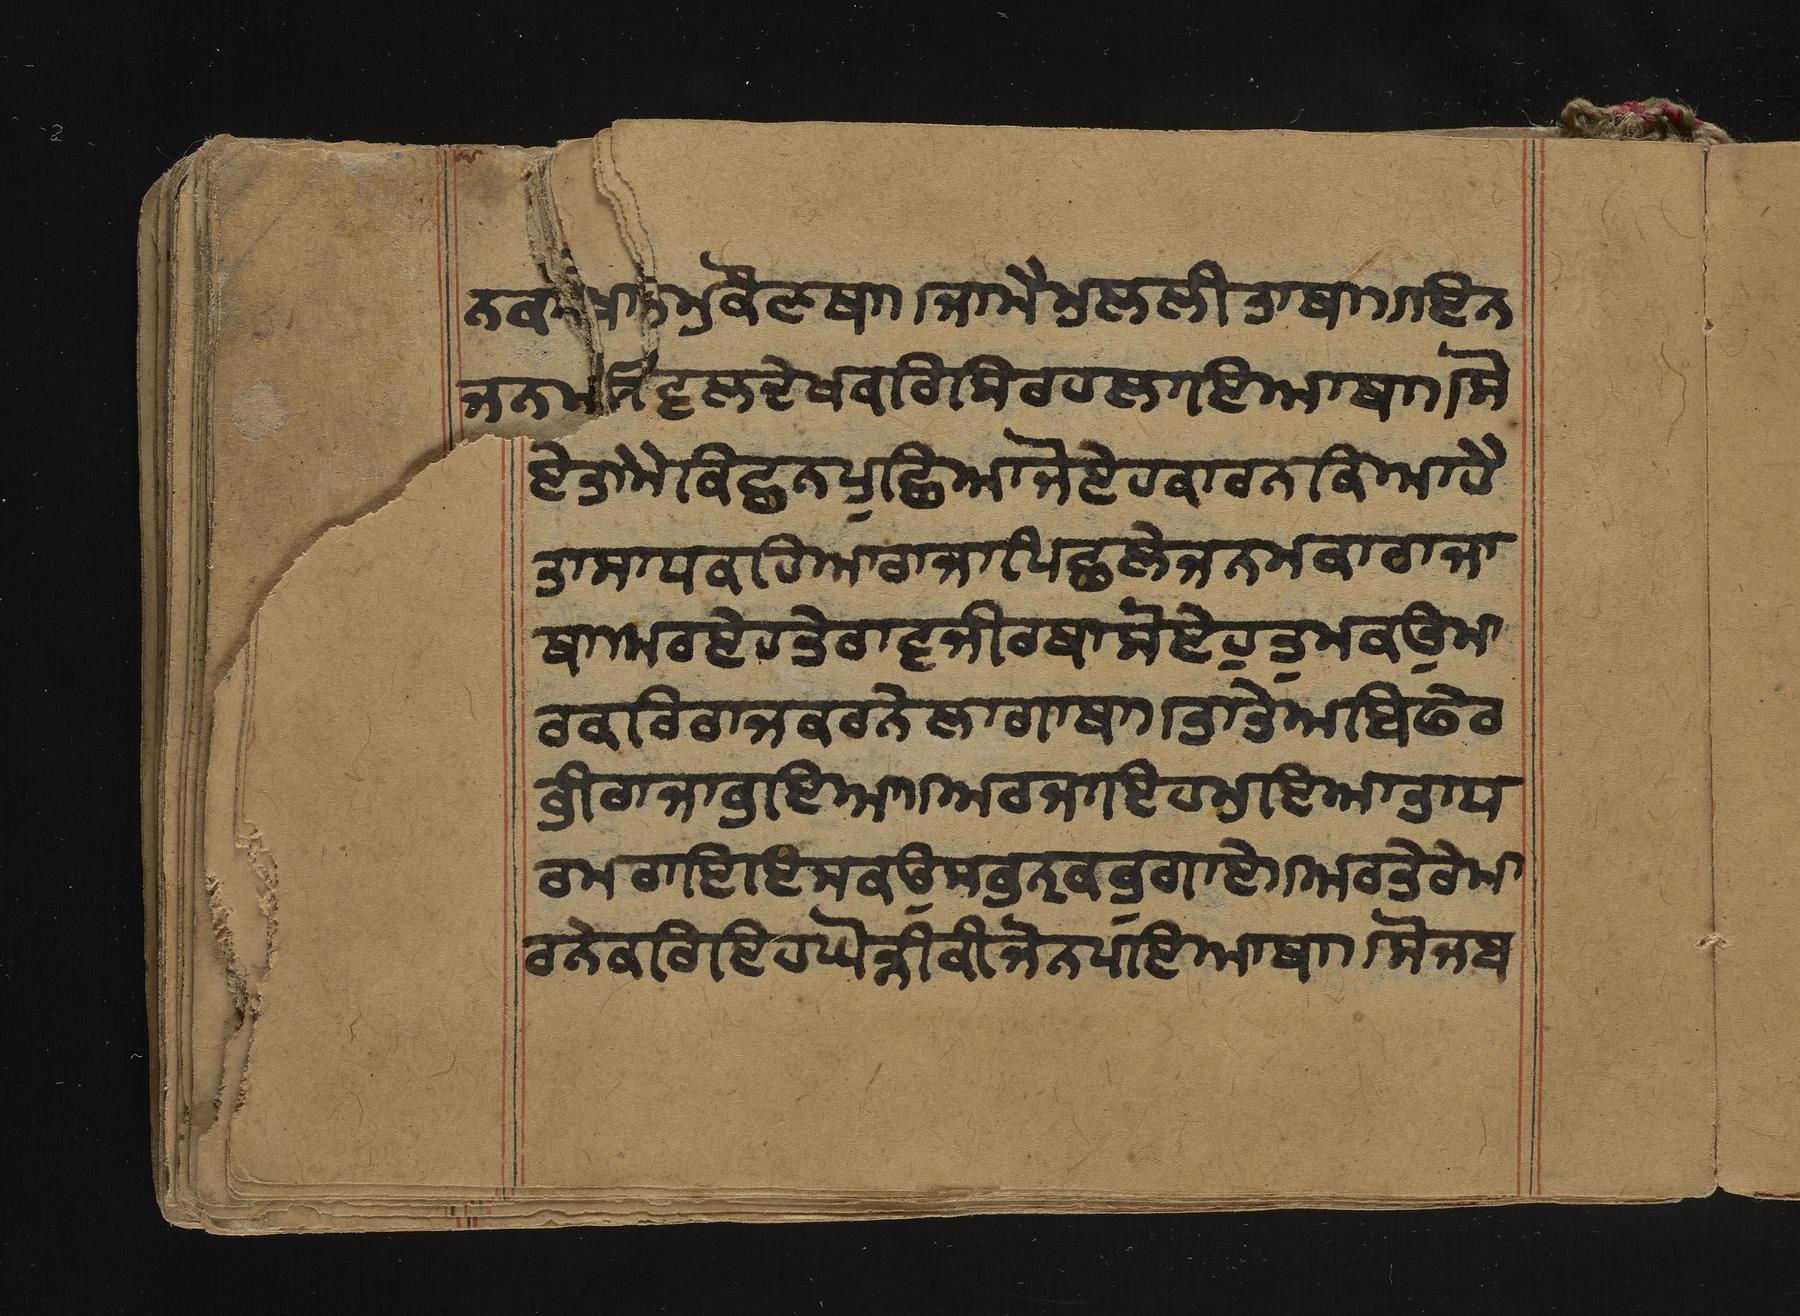 ਨਕਾ ਖਾਨਮੁਕੌਣਥਾ॥ਜਾਮੈਮੁਲਲੀਤਾਥਾ॥ਇਨ
ਜਨਮ ਵਲਦੇਖਕਰਿਸਿਰਹਲਾਇਆਥਾ॥ਸੋ
ਏਤਾਮੇਕਿਛਨਪੁਛਿਆਜੋਏਹਕਾਰਨਕਿਆਹੈ
ਤਾਸਾਧਕਹਿਆਰਾਜਾਪਿਛਲੇਜਨਮਕਾਰਾਜਾ
ਥਾ॥ਅਰਏਹਤੇਰਾਵਜੀਰਥਾਸੋਏਹੁਤੁਮਕਉਮਾ
ਰਕਰਿਰਾਜਕਰਨੇਲਾਗਾਥਾ॥ਤਾਤੇਅਬਿਫੇਰ
ਭੀਰਾਜਾਭਇਆ॥ਅਰਜਾਇਹਮੁਇਆਤਾਧ
ਰਮਰਾਇਇਸਕਉਸਭੁਨਕਭੁਗਾਏ॥ਅਰਤੇਰੇਮਾ
ਰਨੇਕਰਿਇਹਘੋੜੀਕੀਜੋਨਪਾਇਆਥਾ॥ਸੋਜਬ